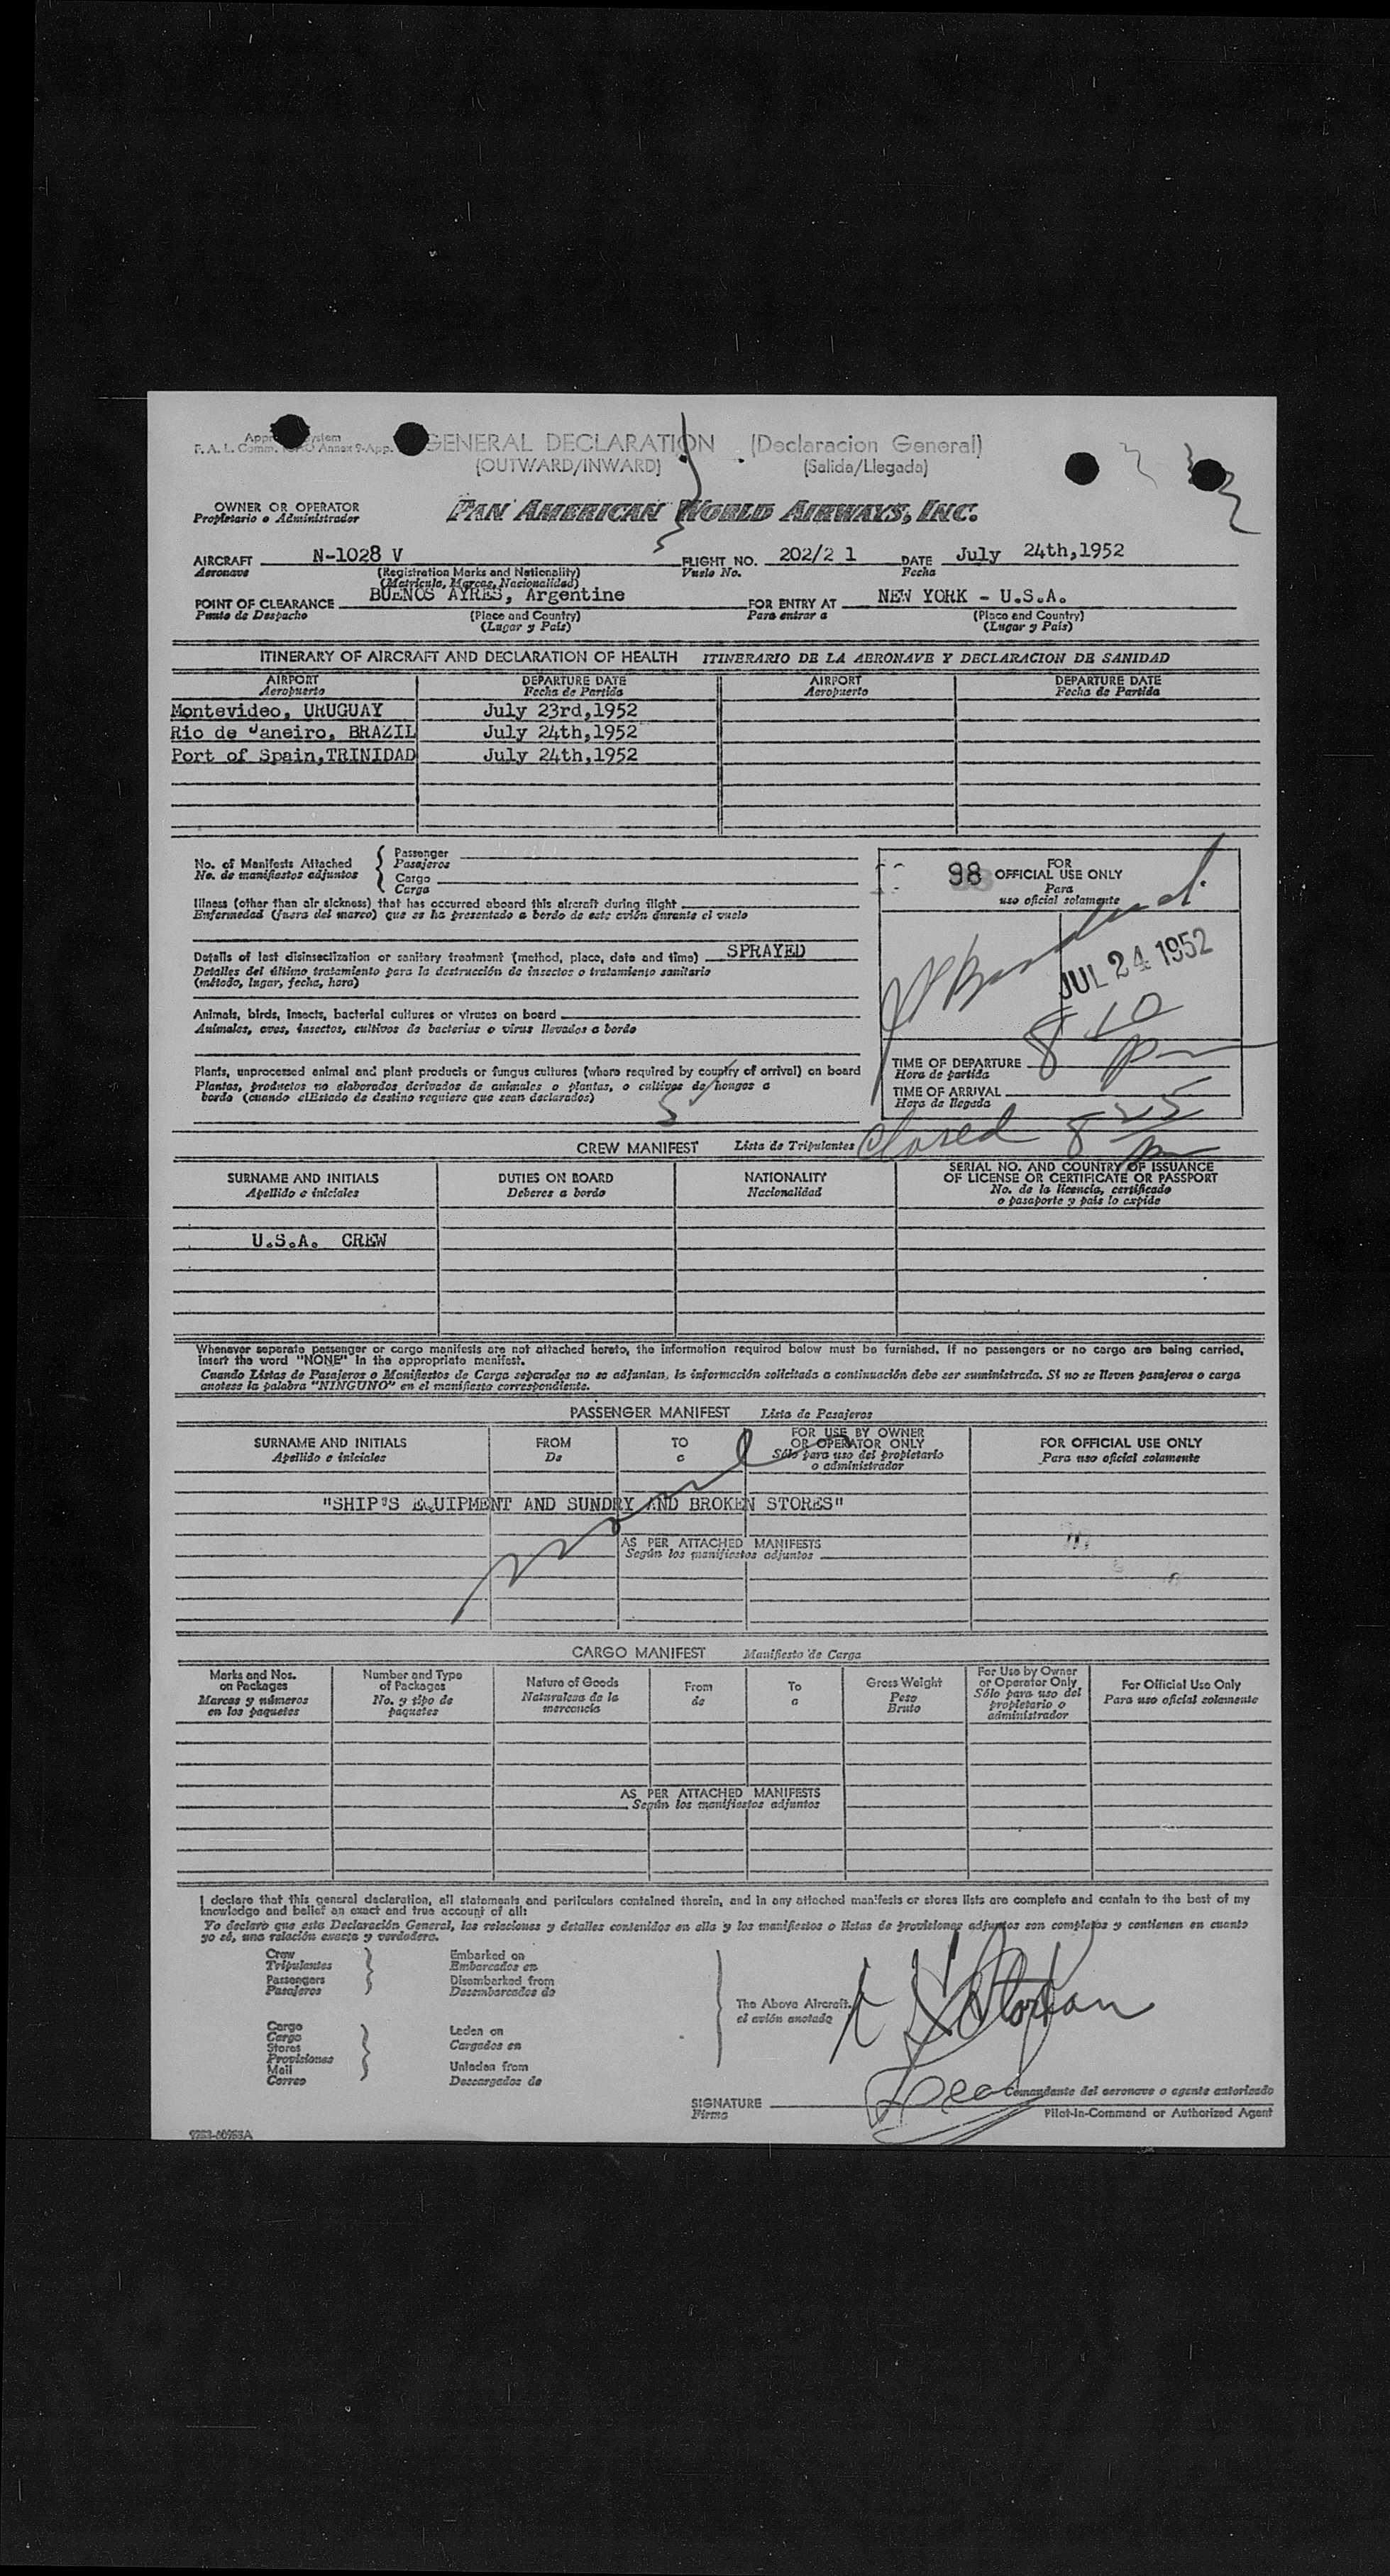 GENERAL DECLARATION (Declaracion General)
(OUTWARD/INWARD) (Salida/Llegada)
OWNER OR OPERATOR
Propietario o Administrador
PAN AMERICAN WORLD AIRWAYS, INC.
AIRCRAFT N-1028 V FLIGHT NO. 202/2 1 DATE July 24th,1952
Aeronave (Registration Marks and Nationality) Vuelo No. Fecha
(Matrícula, Marcas, Nacionalidad)
POINT OF CLEARANCE BUENOS AYRES, Argentine FOR ENTRY AT NEW YORK - U.S.A.
Punto de Despacho (Place and Country) Para entrar a (Place and Country)
(Lugar y País) (Lugar y País)
ITINERARY OF AIRCRAFT AND DECLARATION OF HEALTH ITINERARIO DE LA AERONAVE Y DECLARACION DE SANIDAD
AIRPORT DEPARTURE DATE AIRPORT DEPARTURE DATE
Aeropuerto Fecha de Partida Aeropuerto Fecha de Partida
Montevideo, URUGUAY July 23rd,1952
Rio de Janeiro, BRAZIL July 24th,1952
Port of Spain,TRINIDAD July 24th,1952
No. of Manifests Attached
No. de manifiestos adjuntos
Passenger
Pasajeros
Cargo
Carga
98 FOR OFFICIAL USE ONLY
Para
uso oficial solamente
Illness (other than air sickness) that has occurred aboard this aircraft during flight
Enfermedad (fuera del mareo) que se ha presentado a bordo de este avión durante el vuelo
Details of last disinsectization or sanitary treatment (method, place, date and time) SPRAYED
Detalles del último tratamiento para la destrucción de insectos o tratamiento sanitario
(método, lugar, fecha, hora)
JUL 24 1952
Animals, birds, insects, bacterial cultures or viruses on board
Animales, aves, insectos, cultivos de bacterias o virus llevados a bordo
Plants, unprocessed animal and plant products or fungus cultures (where required by country of arrival) on board
Plantas, productos no elaborados derivados de animales o plantas, o cultivos de hongos a
bordo (cuando elEstado de destino requiere que sean declarados)
TIME OF DEPARTURE 8 10 pm
Hora de partida
TIME OF ARRIVAL
Hora de llegada
Closed 8 25 pm
CREW MANIFEST Lista de Tripulantes
SURNAME AND INITIALS DUTIES ON BOARD NATIONALITY SERIAL NO. AND COUNTRY OF ISSUANCE
OF LICENSE OR CERTIFICATE OR PASSPORT
Apellido e iniciales Deberes a bordo Nacionalidad No. de la licencia, certificado
o pasaporte y país lo expide
U.S.A. CREW
Whenever separate passenger or cargo manifests are not attached hereto, the information required below must be furnished. If no passengers or no cargo are being carried,
insert the word "NONE" in the appropriate manifest.
Cuando Listas de Pasajeros o Manifiestos de Carga separados no se adjuntan, la información solicitada a continuación debe ser suministrada. Si no se lleven pasajeros o carga
anotese la palabra "NINGUNO" en el manifiesto correspondiente.
PASSENGER MANIFEST Lista de Pasajeros
SURNAME AND INITIALS FROM TO FOR USE BY OWNER
OR OPERATOR ONLY FOR OFFICIAL USE ONLY
Apellido e iniciales De a Sólo para uso del propietario
o administrador Para uso oficial solamente
"SHIP'S EQUIPMENT AND SUNDRY AND BROKEN STORES"
none
AS PER ATTACHED MANIFESTS
Según los manifiestos adjuntos
CARGO MANIFEST Manifiesto de Carga
Marks and Nos.
on Packages
Marcas y números
en los paquetes
Number and Type
of Packages
No. y tipo de
paquetes
Nature of Goods
Naturalesa de la
mercancía
From
de
To
a
Gross Weight
Peso
Bruto
For Use by Owner
or Operator Only
Sólo para uso del
propietario o
administrador
For Official Use Only
Para uso oficial solamente
AS PER ATTACHED MANIFESTS
Según los manifiestos adjuntos
I declare that this general declaration, all statements and particulars contained therein, and in any attached manifests or stores lists are complete and contain to the best of my
knowledge and belief an exact and true account of all:
Yo declaro que esta Declaración General, las relaciones y detalles contenidos en ella y los manifiestos o listas de provisiones adjuntos son completos y contienen en cuanto
yo sé, una relación exacta y verdadera.
Crew
Tripulantes
Passengers
Pasajeros
Embarked on
Embarcados en
Disembarked from
Desembarcados de
The Above Aircraft.
el avión anotado
Cargo
Cargo
Stores
Provisiones
Mail
Correo
Laden on
Cargados en
Unladen from
Descargados de
SIGNATURE
Firma
Comandante del aeronave o agente autorizado
Pilot-in-Command or Authorized Agent